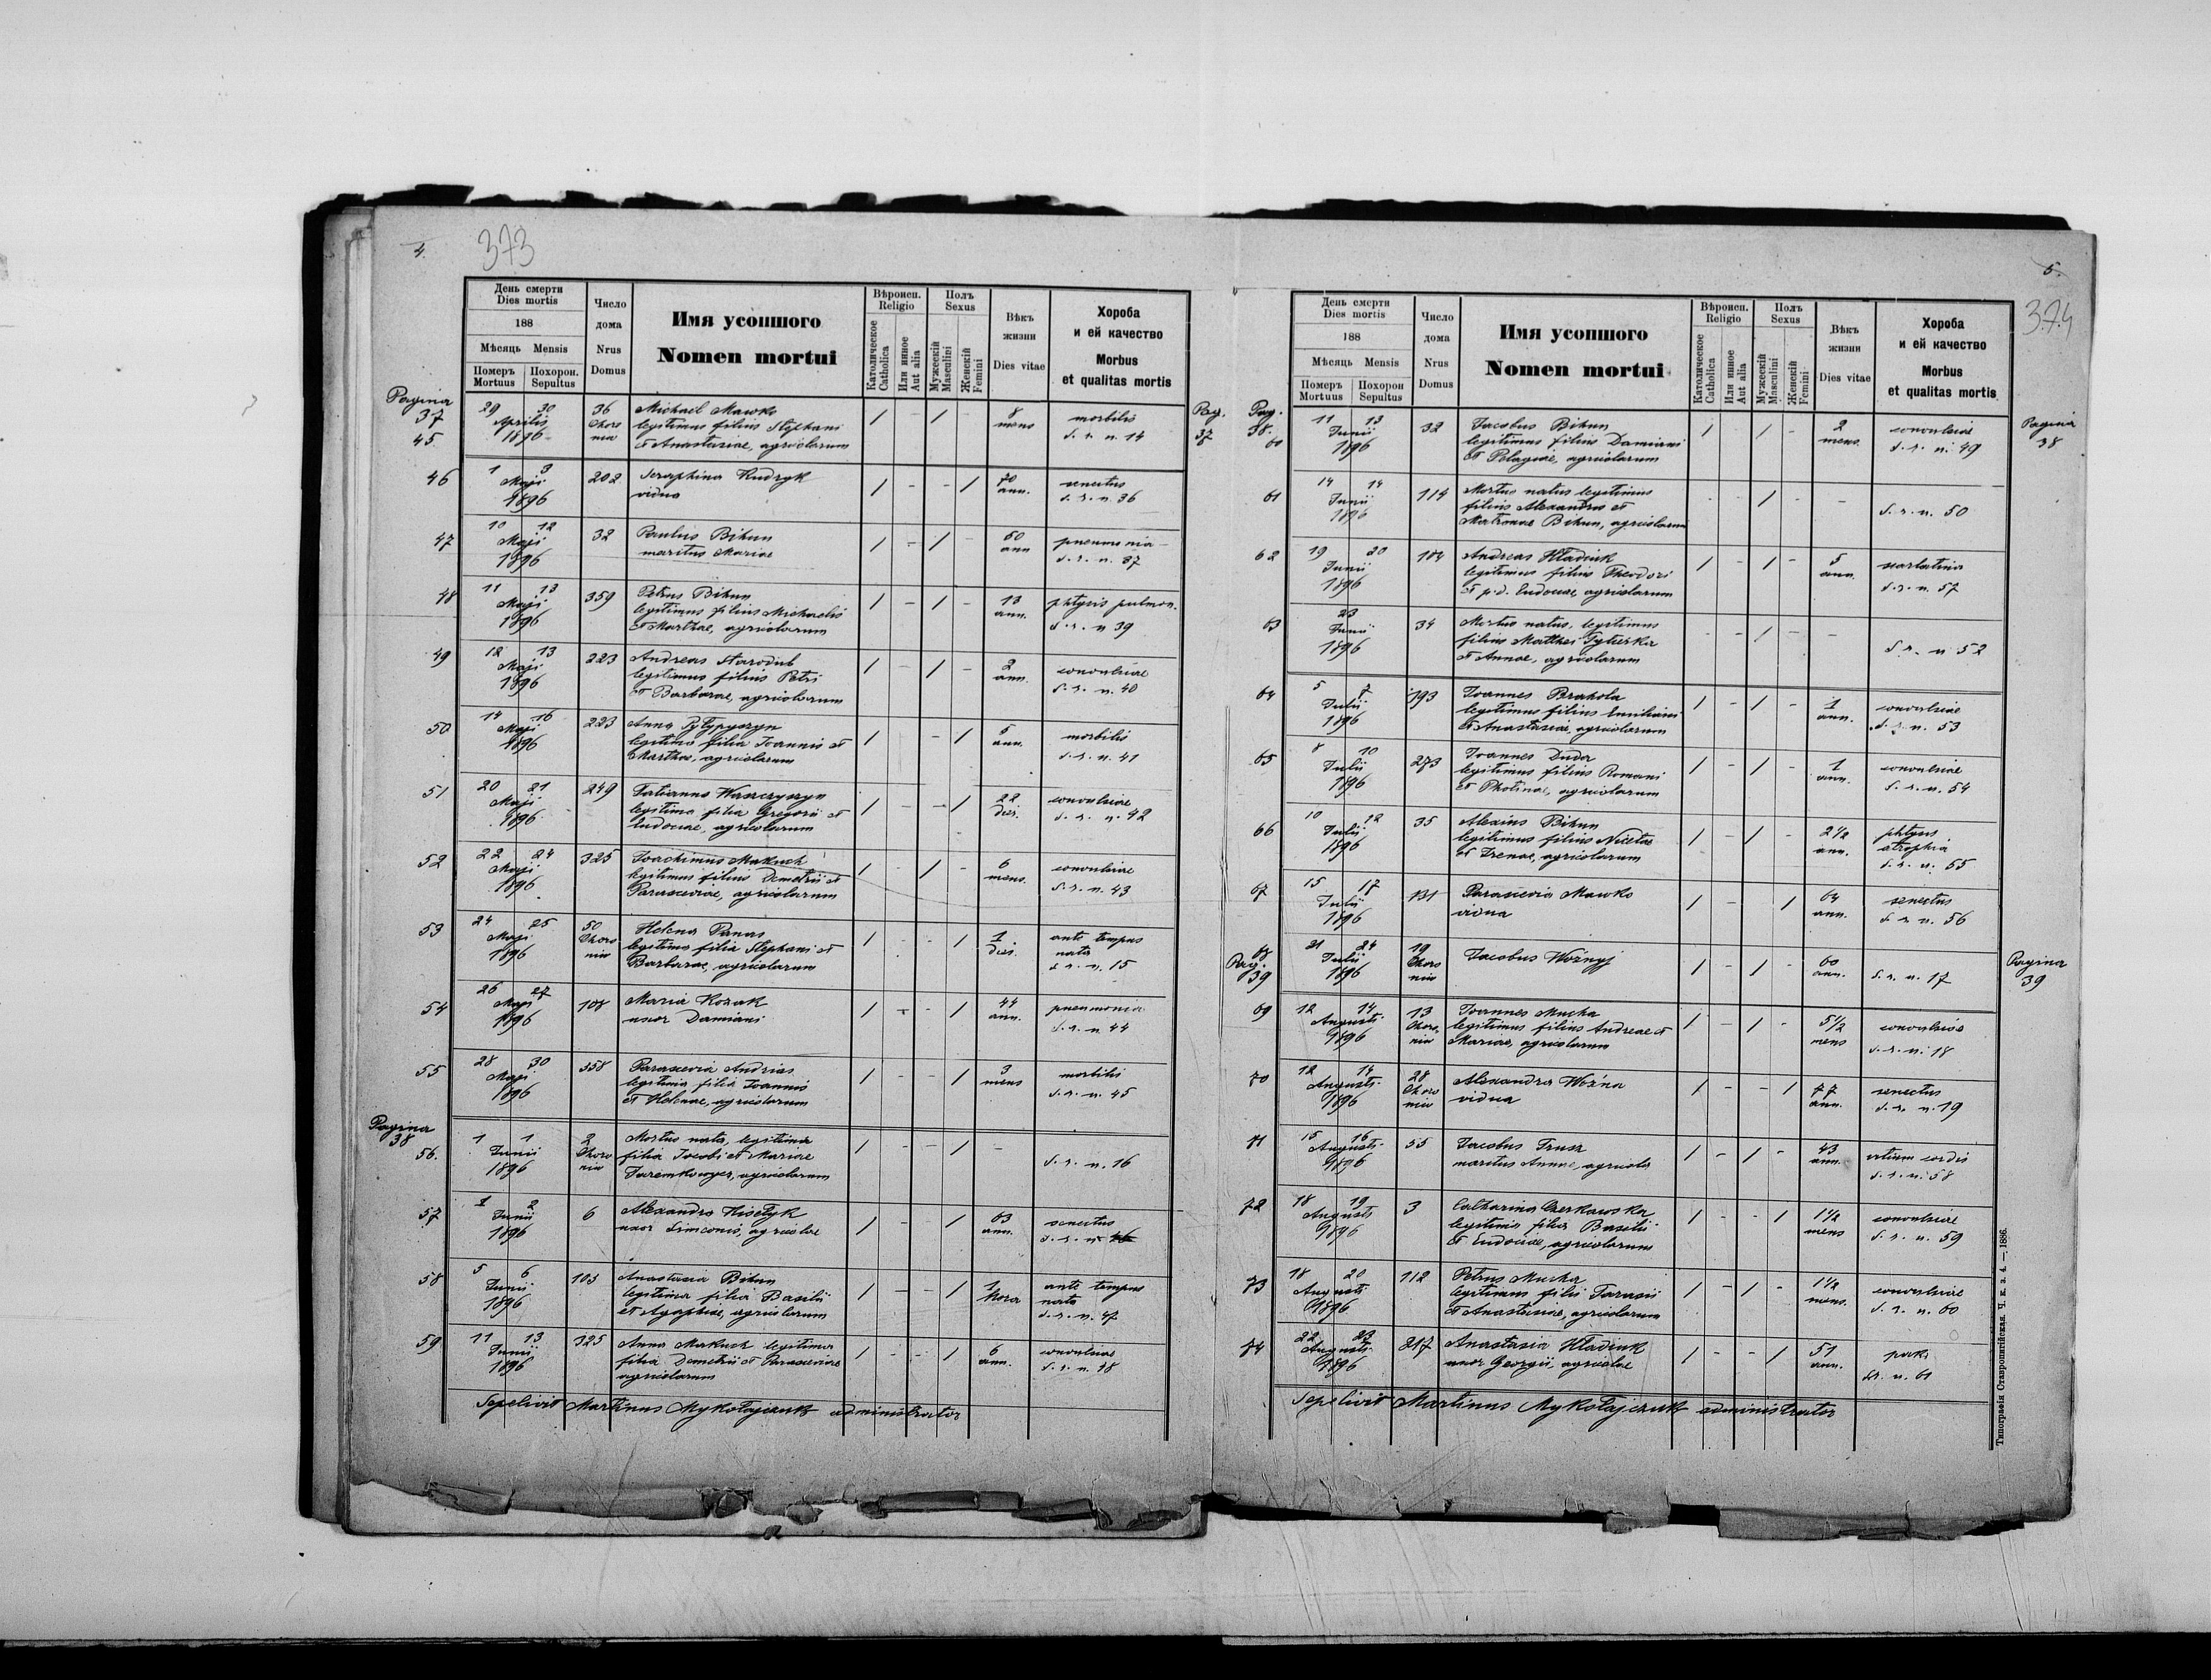 4.
373
День смерти
Dies mortis
188
Мѣсяць Mensis
Померъ Похорон.
Mortuus Sepultus
Число
дома
Nrus
Domus
Имя усопшого
Nomen mortui
Вѣроисп.
Religio
Католическое
Catholica
Или инное
Aut alia
Полъ
Sexus
Мужескій
Masculini
Женскій
Femini
Вѣкъ
жизни
Dies vitae
Хороба
и ей качество
Morbus
et qualitas mortis
Pagina
37
45
29 30
Aprilis
1896
36
Choro
nia
Michael Mawko
legitimus filius Stephani
et Anastasiae, agricolarum
/ / 8
mens
morbilis
S. r. n. 14
Pag.
37
46
1 3
Maji
1896
202
Seraphina Kudryk
vidua
/ - - / 70
ann.
senectus
S. r. n. 36
47
10 12
Maji
1896
32
Paulus Bihun
maritus Mariae
/ - / 50
ann
pneumonia
S. r. n. 37
48
11 13
Maji
1896
359
Petrus Bihun
legitimus filius Michaelis
et Marthae, agricolarum
/ - / - 13
ann.
phtysis pulmon.
S. r. n 39
49
12 13
Maji
1896
223
Andreas Starodub
legitimus filius Petri
et Barbarae, agricolarum
/ - / - 2
ann.
convulsiae
S. r. n. 40
50
14 16
Maji
1896
223
Anna Pylypyszyn
legitima filia Ioannis et
Marthae, agricolarum
/ - / 5
ann.
morbilis
S. r. n. 41
51
20 21
Maji
1896
249
Tatianna Waszczyszyn
legitima filia Gregorii et
Eudociae, agricolarum
/ - - / 22
dies.
convulsiae
S. r. n. 42
52
22 24
Maji
1896
325
Ioachimus Makuch
legitimus filius Demetrii et
Parasceviae, agricolarum
/ - / - 6
mens.
convulsiae
S. r. n. 43
53
24 25
Maji
1896
50
Choro
nia
Helena Panas
legitima filia Stephani et
Barbarae, agricolarum
/ - - / 1
dies.
ante tempus
nata
S. r. n. 15
54
26 27
Maji
1896
108
Maria Kozak
uxor Damiani
/ - - / 44
ann.
pneumonia
S. r. n 44
55
28 30
Maji
1896
358
Parascevia Andrias
legitima filia Ioannis
et Helenae, agricolarum
/ - - / 3
mens
morbilis
S. r. n. 45
Pagina
38
56.
1 1
Junii
1896
2
Choro
nia
Mortuo nata, legitima
filia Jacobi et Mariae
Daremkowycz, agricolarum
/ - - / -
S. r. n. 16
57
1 2
Junii
1896
6
Alexandra Kisełyk
uxor Simeonis, agricolae
/ - / 63
ann.
senectus
S. r. n. 46
58
5 6
Junii
1896
103
Anastasia Bihun
legitima filia Basilii
et Agaphiae, agricolarum
/ - - / 1
hora
ante tempus
nata
S. r. n. 47
59
11 13
Junii
1896
325
Anna Makuch legitima
filia Demetrii et Parasceviae
agricolarum
/ - - / 6
ann.
convulsiae
S. r. n. 48
Sepelivit Martinus Mykołajczuk administrator
5.
374
День смерти
Dies mortis
188
Мѣсяць Mensis
Померъ Похорон
Mortuus Sepultus
Число
дома
Nrus
Domus
Имя усопшого
Nomen mortui
Вѣроисп.
Religio
Католическое
Catholica
Или инное
Aut alia
Полъ
Sexus
Мужескій
Masculini
Женскій
Femini
Вѣкъ
жизни
Dies vitae
Хороба
и ей качество
Morbus
et qualitas mortis
Pag.
38.
60
11 13
Junii
1896
32
Jacobus Bihun
legitimus filius Damiani
et Pelagiae, agricolarum
/ - / - 2
mens.
convulsiae
S. r. n. 49
Pagina
38
61
14 14
Junii
1896
114
Mortuo natus legitimus
filius Alexandri et
Matronae Bihun, agricolarum
- - / - -
S. r. n. 50
62
19 20
Junii
1896
184
Andreas Hładiuk
legitimus filius Theodori
et p.d. Eudociae, agricolarum
/ - / - 5
ann.
scarlatina
S. r. n. 57
63
23
Junii
1896
34
Mortuo natus, legitimus
filius Matthei Tyterka
et Annae, agricolarum
- - / - -
S. r. n. 52
64
5 7
Julii
1896
193
Ioannes Perahola
legitimus filius Emiliani
et Anastasiae, agricolarum
/ - / - 1
ann.
convulsiae
S. r. n. 53
65
8 10
Julii
1896
273
Ioannes Duda
legitimus filius Romani
et Photinae, agricolarum
/ - / - 1
ann.
convulsiae
S. r. n. 54
66
10 12
Julii
1896
35
Alexius Bihun
legitimus filius Nicetae
et Irenae, agricolarum
/ - / - 2 1/2
ann.
phtysis
atrophia
S. r. n. 55
67
15 17
Julii
1896
131
Parascevia Mawko
vidua
/ - / 64
ann.
senectus
S. r. n. 56
68
Pag.
39
21 24
Julii
1896
19
Choro
nia
Jacobus Woźnyj
/ - / - 60
ann.
S. r. n. 17
Pagina
39
69
12 14
Augusti
1896
13
Choro
nia
Ioannes Mucha
legitimus filius Andreae et
Mariae, agricolarum
/ - / - 5 1/2
mens
convulsiae
S. r. n. 18
70
12 14
Augusti
1896
28
Choro
nia
Alexandra Woźna
vidua
/ - - / 77
ann.
senectus
S. r. n. 19
71
15 16
Augusti
1896
55
Jacobus Trusz
maritus Annae, agricola
/ - / - 43
ann.
vitium cordis
S. r. n. 58
72
18 19
Augusti
1896
3
Catharina Czerkawska
legitima filia Basilii
et Eudociae, agricolarum
/ - - / 1 1/2
mens
convulsiae
S. r. n. 59
73
18 20
Augusti
1896
112
Petrus Mucha
legitimus filii Tarasii
et Anastasiae, agricolarum
/ - / - 1 1/2
mens.
convulsiae
S. r. n. 60
74
22 23
Augusti
1896
217
Anastasia Hładiuk
uxor Georgii, agricolae
/ - - / 51
ann.
S. r. n. 61
Sepelivit Martinus Mykołajczuk administrator
Типографія Ставропигійская. Ч. к. з. 4. — 1886.